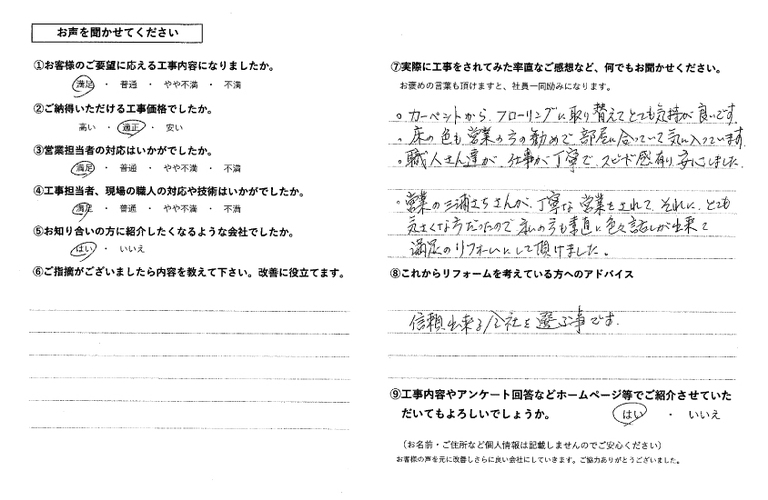 お声を聞かせてください
①お客様のご要望に応える工事内容になりましたか。
満足 ・ 普通 ・ やや不満 ・ 不満
②ご納得いただける工事価格でしたか。
高い ・ 適正 ・ 安い
③営業担当者の対応はいかがでしたか。
満足 ・ 普通 ・ やや不満 ・ 不満
④工事担当者、現場の職人の対応や技術はいかがでしたか。
満足 ・ 普通 ・ やや不満 ・ 不満
⑤お知り合いの方に紹介したくなるような会社でしたか。
はい ・ いいえ
⑥ご指摘がございましたら内容を教えて下さい。改善に役立てます。
⑦実際に工事をされてみた率直なご感想など、何でもお聞かせください。
お褒めの言葉も頂けますと、社員一同励みになります。
。カーペットから、フローリングに取り替えてとても気持が良いです。
。床の色も営業の方の勧めで部屋に合っていて気に入っています。
。職人さん達が、仕事が丁寧で、スピード感有り安心しました。
。営業の三浦さんが、丁寧な営業をされて、それに、とても
気さくな方だったので私の方も素直に色々話しが出来て
満足のリフォームにして頂けました。
⑧これからリフォームを考えている方へのアドバイス
信頼出来る会社を選ぶ事です。
⑨工事内容やアンケート回答などホームページ等でご紹介させていた
だいてもよろしいでしょうか。 はい ・ いいえ
（お名前・ご住所など個人情報は記載しませんのでご安心ください）
お客様の声を元に改善しさらに良い会社にしていきます。ご協力ありがとうございました。